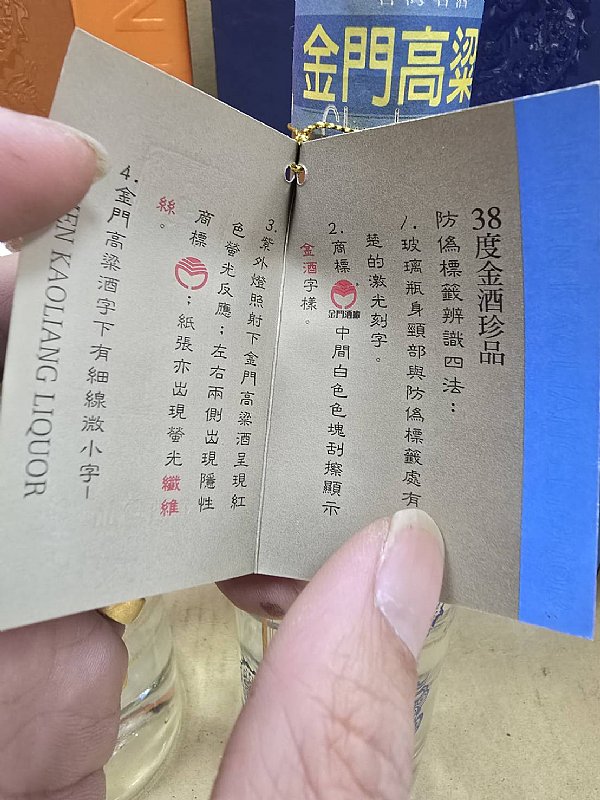 金門高粱
38度金酒珍品
防偽標籤辨識四法：
1. 玻璃瓶身頸部與防偽標籤處有
楚的激光刻字。
2. 商標 金門酒廠 中間白色色塊刮擦顯示
金酒字樣。
3. 紫外燈照射下金門高粱酒呈現紅
色螢光反應；左右兩側出現隱性
商標；紙張亦出現螢光纖維
絲。
4. 金門高粱酒字下有細線微小字—
KAOLIANG LIQUOR